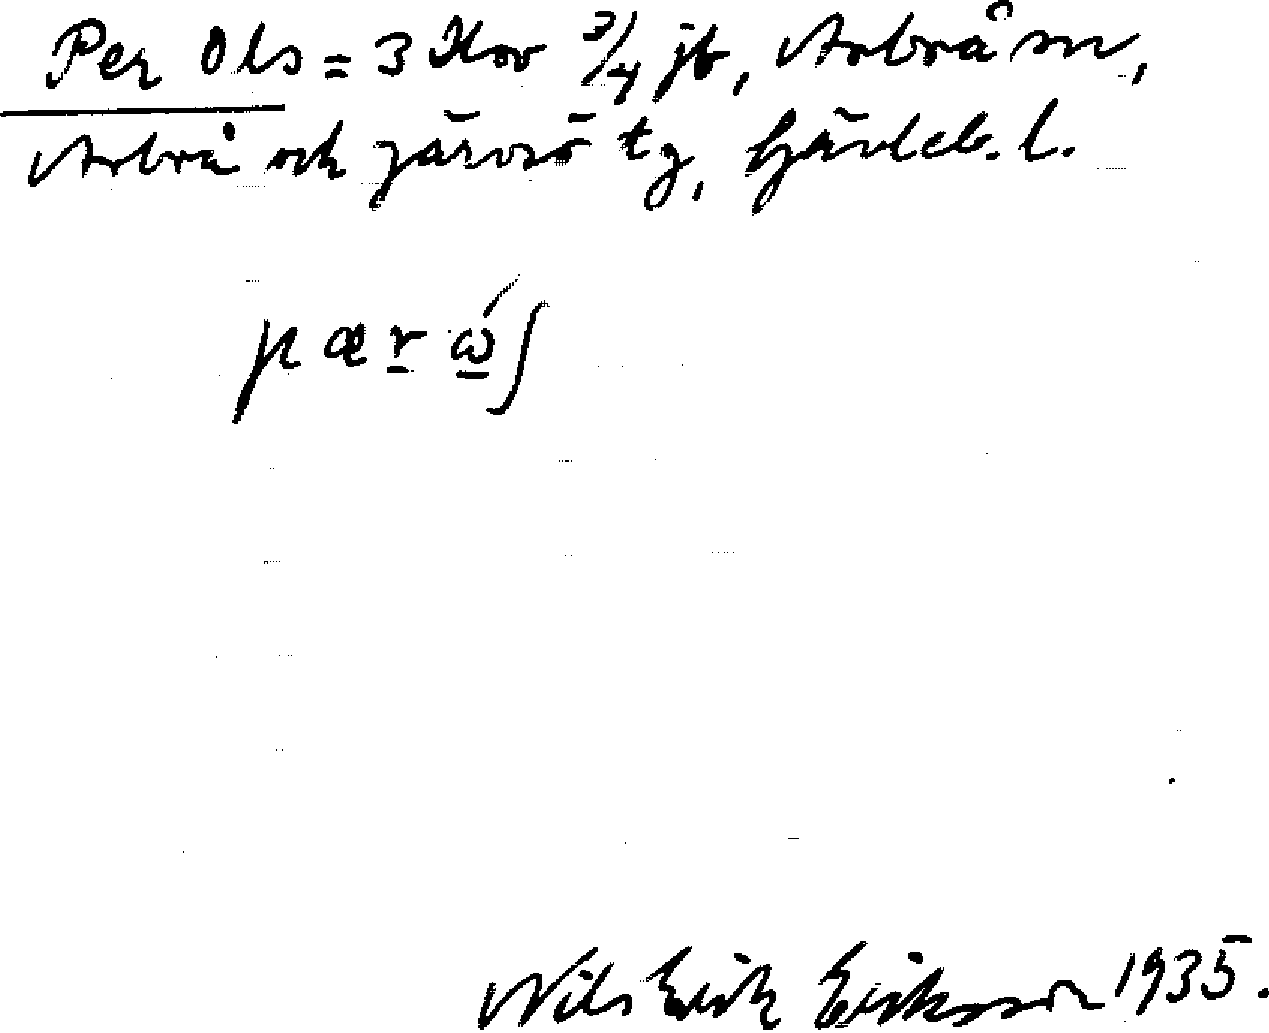 Per Ols = 3 Hov 3/4 jb, Arbrå sn,
Arbrå och Järvsö tg, Gävleb. l.
pær ώʃ
Nils Erik Eriksson 1935.